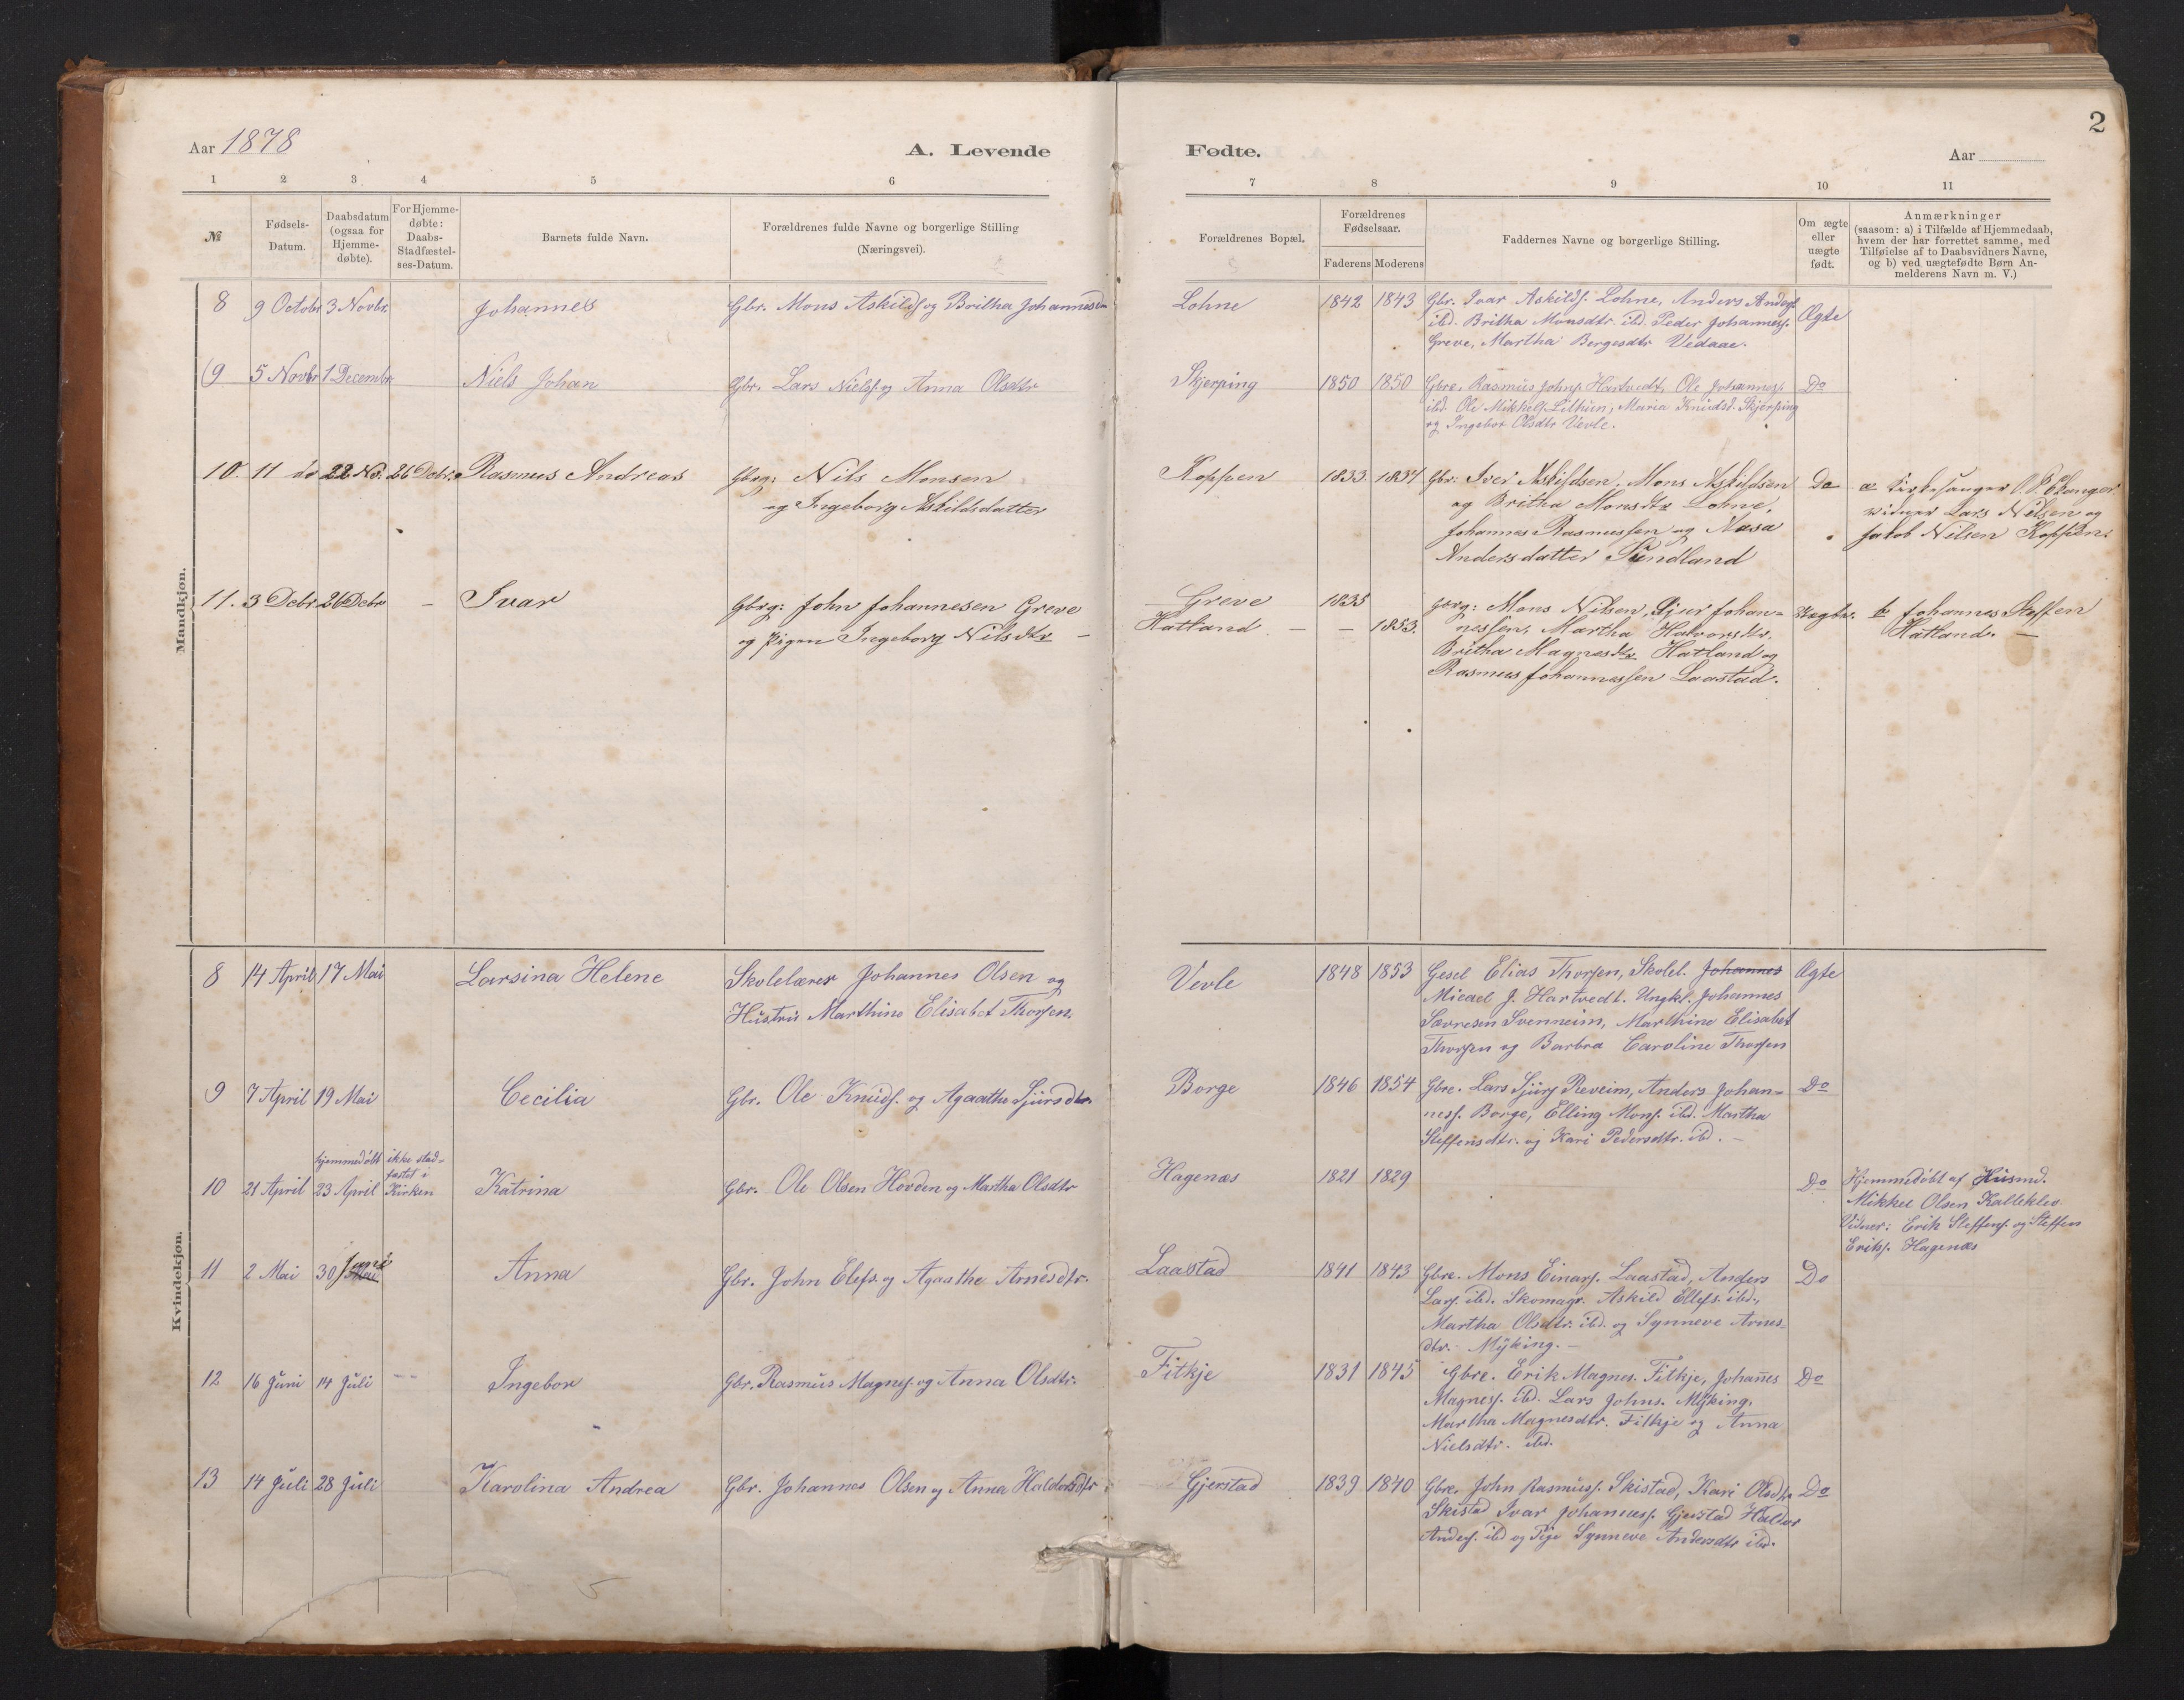 Aar 1878
A. Levende
1 2 3 4 5 6
№
Fødsels-
Datum.
Daabsdatum
(ogsaa for
Hjemme-
døbte).
For Hjemme-
døbte:
Daabs-
Stadfæstel-
ses-Datum.
Barnets fulde Navn.
Forældrenes fulde Navne og borgerlige Stilling
(Næringsvei).
Mandkjøn.
8 9 Octobr 3 Novbr. Johannes Gbr. Mons Askilds. og Britha Johannesdtr
9 5 Novbr 1 Decembr Niels Johan Gbr. Lars Nielss. og Anna Olsdtr
10. 11 do 22 No. 26 Debr. Rasmus Andreas Gbrg: Nils Monsen
og Ingeborg Askildsdatter
11. 3 Debr. 26 Debr – Ivar Gbrg: John Johannesen Greve
og Pigen Ingeborg Nilsdtr –
Kvindekjøn.
8 14 April 17 Mai Larsina Helene Skolelærer Johannes Olsen og
Hustru Marthine Elisabet Thorsen.
9 7 April 19 Mai Cecilia Gbr. Ole Knuds. og Agaathe Sjursdtr.
hjemmedøbt ikke stad-
fæstet i
10 21 April 23 April Kirken Katrina Gbr. Ole Olsen Hovden og Martha Olsdtr
11 2 Mai 30 Juni Mai Anna Gbr. John Elefs. og Agaathe Arnesdtr.
12 16 Juni 14 Juli -- Ingebor Gbr. Rasmus Magnes. og Anna Olsdtr.
13 14 Juli 28 Juli Karolina Andrea Gbr. Johannes Olsen og Anna Haldorsdtr
2
Fødte.
Aar
7 8 9 10 11
Forældrenes Bopæl.
Forældrenes
Fødselsaar.
Faderens Moderens
Faddernes Navne og borgerlige Stilling.
Om ægte
eller
uægte
født.
Anmærkninger
(saasom: a) i Tilfælde af Hjemmedaab,
hvem der har forrettet samme, med
Tilføielse af to Daabsvidners Navne,
og b) ved uægtefødte Børn An-
melderens Navn m. V.)
Lohne 1842 1843 Gbr. Ivar Askilds. Lohne, Anders Anders.
ibd. Britha Monsdtr ibd. Peder Johanness.
Greve, Martha Bergesdtr Vedaae.
Ægte
Skjerping 1850 1850 Gbre. Rasmus Johns. Hartvedt, Ole Johannes. Do
ibd. Ole Mikkels. Lithun, Maria Knudsd. Skjerping
og Ingebor Olsdtr Vevle.
Koppen 1833. 1837 Gbr. Iver Askildsen, Mons Askildsen Do
og Britha Monsdtr Lohne,
Johannes Rasmussen og Aasa
Andersdatter Sundland
a Kirkesanger
vidner Lars Nilsen og
Jakob Nilsen Koppen.
Greve 1835
Hatland – – 1853.
Gbrg: Mons Nilsen, Sjur Johan-
nessen, Martha Halvorsdtr.
Britha Magnesdtr Hatland og
Rasmus Johannessen Laastad.
b Johannes Steffen
Hatland. –
Vevle 1848 1853 Gesel Elias Thorsen, Skolel. Johannes Ægte
Micael J. Hartvedt. Ungkl. Johannes
Sævresen Svenneim, Marthine Elisabet
Thorsen og Barbra Caroline Thorsen
Borge 1846 1854 Gbre. Lars Sjurs. Reveim, Anders Johan- Do
ness. Borge, Elling Mons. ibd. Martha
Steffensdtr. og Kari Pedersdtr. ibd. –
Hagenæs 1821 1829 Do Hjemmedøbt af Husmd.
Mikkel Olsen Kalleklev
Vidner: Erik Steffens. og Steffen
Eriks. Hagenæs
Laastad 1841 1843 Gbre. Mons Einars. Laastad, Anders Do
Lars. ibd. Skomagr. Askild Ellefs. ibd.,
Martha Olsdtr. ibd. og Synneve Arnes-
dtr. Myking. –
Fitkje 1831 1845 Gbre. Erik Magnes. Fitkje, Johañes Do
Magness. ibd. Lars Johns. Myking,
Martha Magnesdtr. Fitkje og Anna
Nielsdtr. ibd.
Gjerstad 1839 1840 Gbre. John Rasmuss. Skistad, Kari Olsdtr Do
Skistad Ivar Johanness. Gjerstad Haldor
Anders. ibd og Pige Synneve Andersdtr ibd.